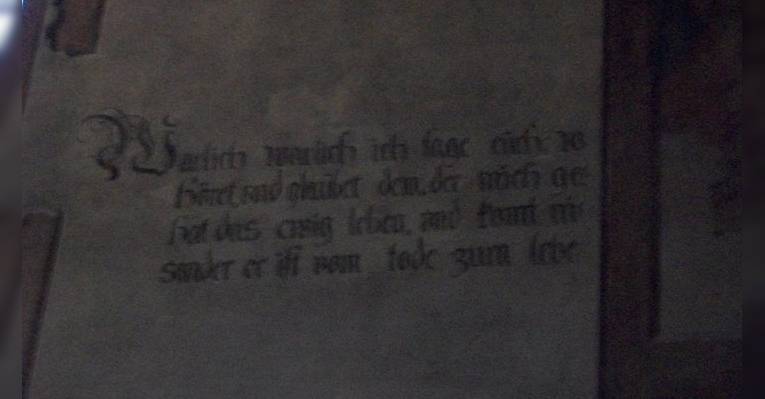 Warlich warlich ich sage eüch: w
höret und glaubet dem, der mich ge
hat das ewig leben, und kumt ni
sonder er ist vom tode zum lebe